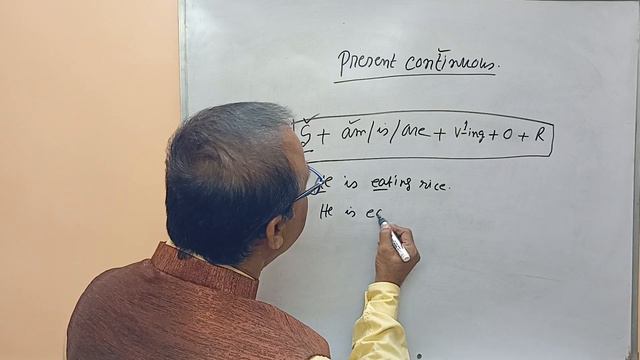 Present continuous.
S + am/is/are + V¹-ing + O + R
is eating rice.
He is ea